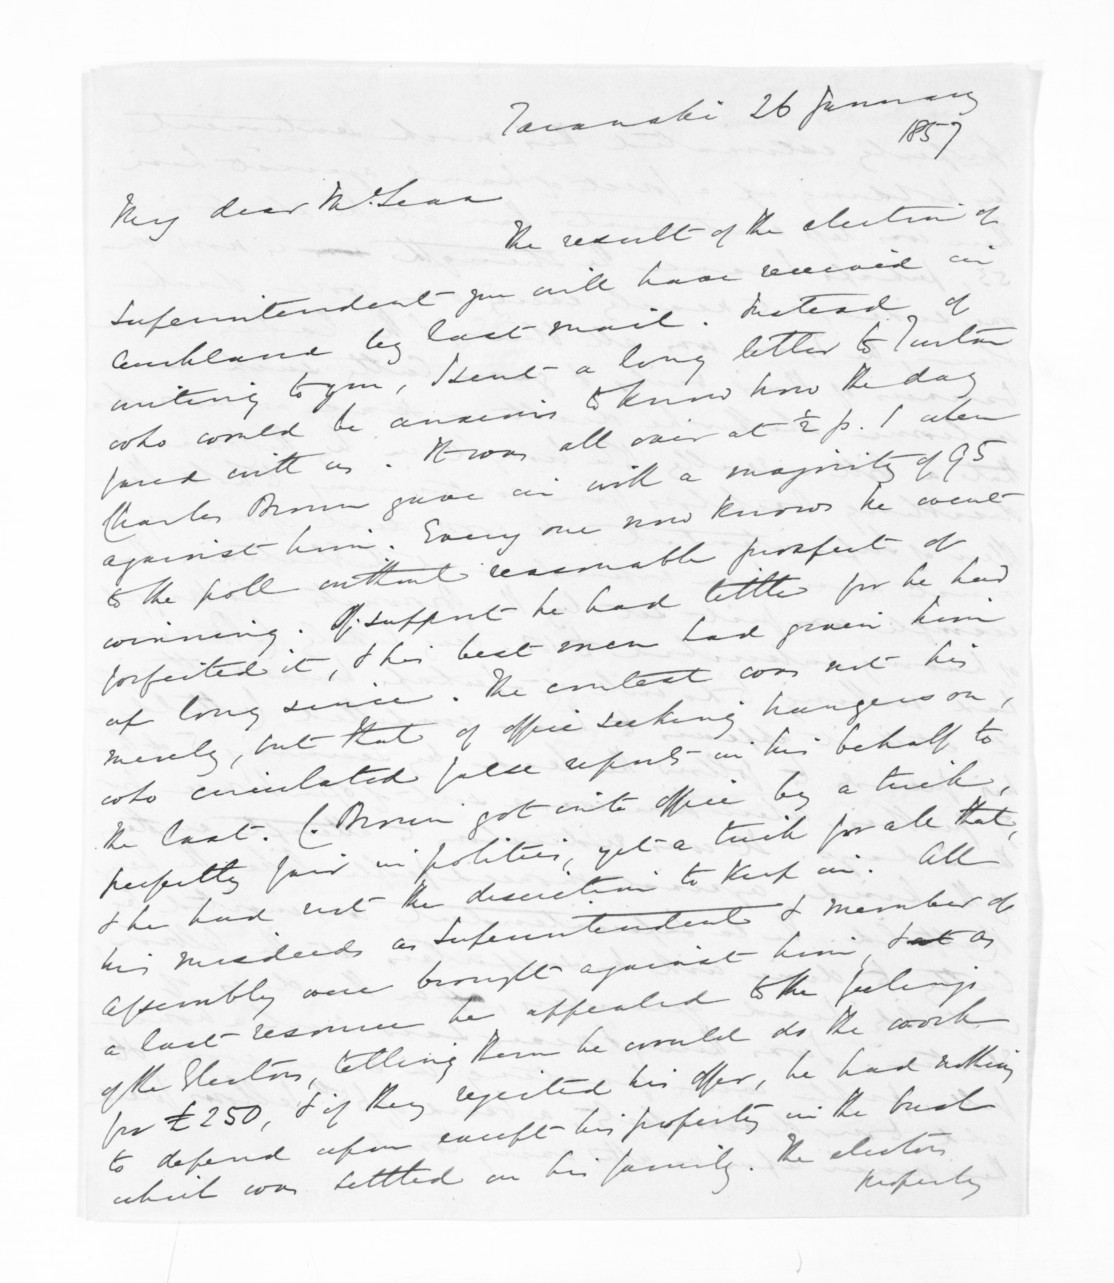 Taranaki 26 January
1857
My dear McLean
The result of the election of
Superintendent you will have received in
Auckland by last mail. Instead of
writing to you, I sent a long letter to Turton
who would be anxious to know how the day
fared with us. It was all over at ½ p. 1 when
Charles Brown gave in with a majority of 95
against him. Every one now knows he went
to the poll without reasonable prospect of
winning. Of support he had little for he had
forfeited it, & his best men had given him
up long since. The contest was not his
merely, but that of office seeking hangers on,
who circulated false reports in his behalf to
the last. C. Brown got into office by a trick,
perfectly fair in politics, yet a trick for all that,
& he had not the discretion to keep in. All
his misdeeds as Superintendent & member of
Assembly were brought against him, & as
a last resource he appealed to the feelings
of the Electors, telling them he would do the work
for £250, & if they rejected his offer, he had nothing
to depend upon except his property in the bush
which was settled on his family. The electors
properly